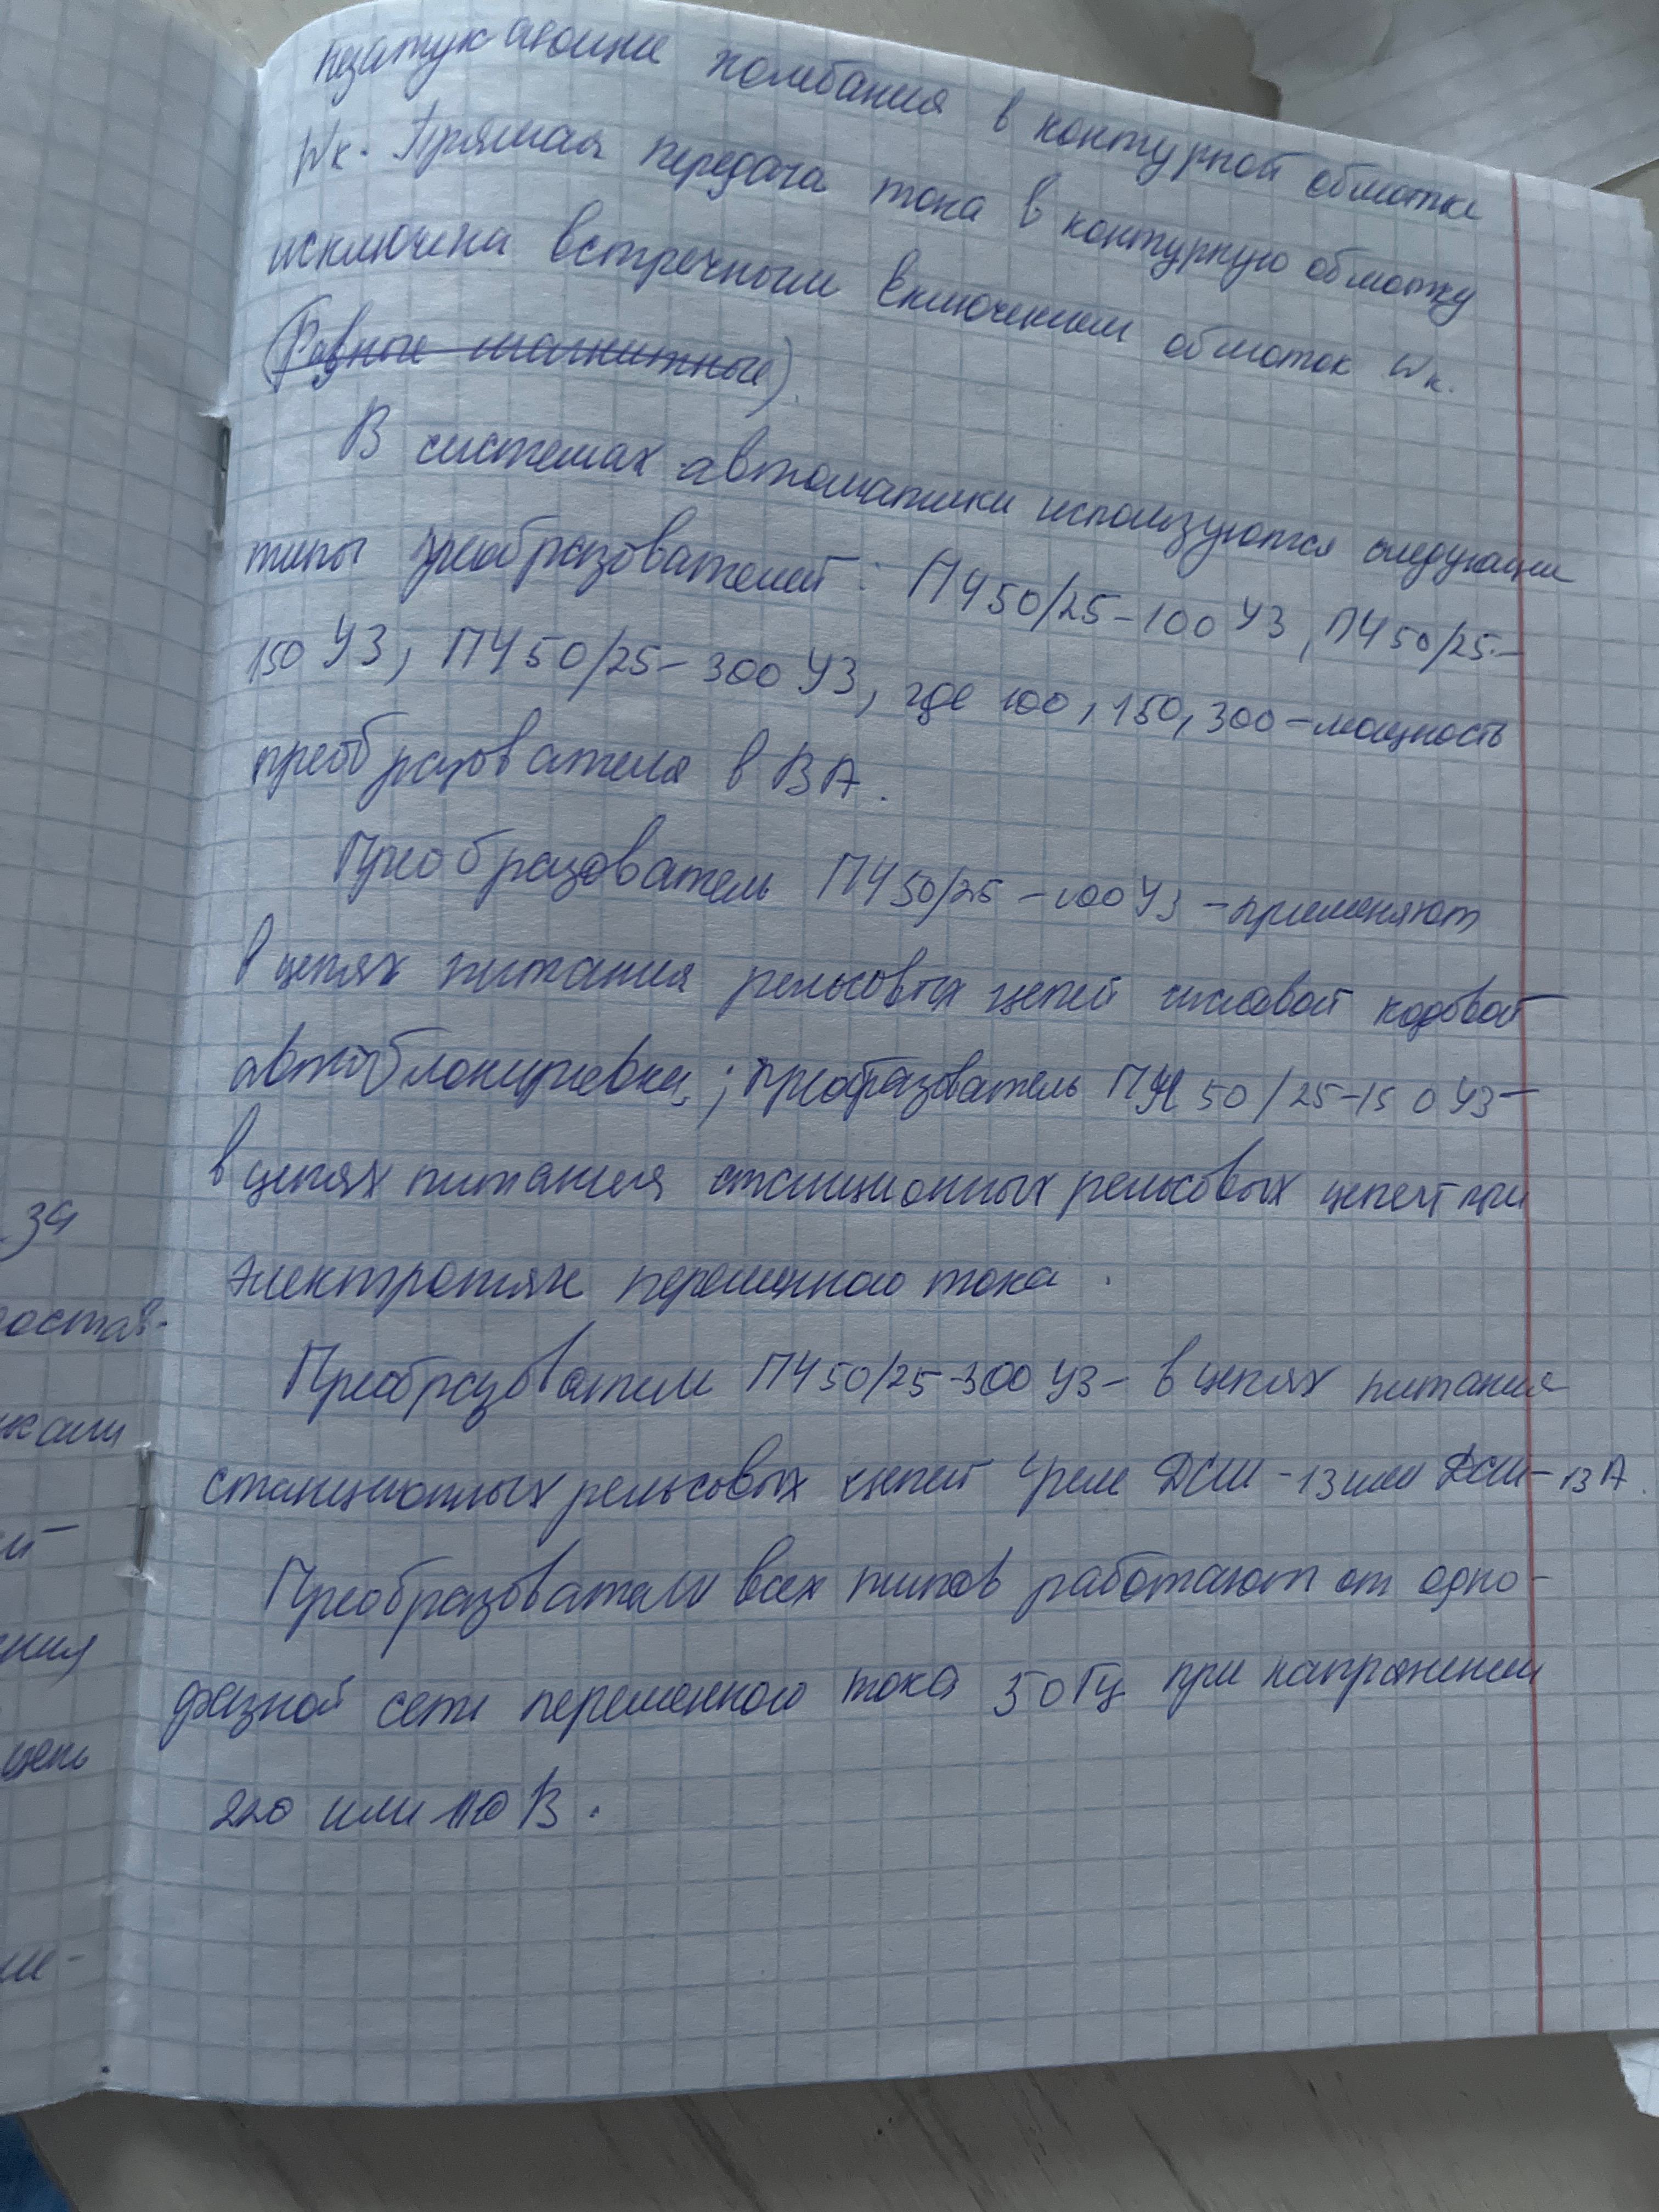 незатухающие колебания в контурной обмотке
Wк. Прямая передача тока в контурную обмотку
исключена встречным включением обмоток Wк.
(Равные магнитные).
В системах автоматики используются следующие
типы преобразователей: ПЧ50/25-100 У3, ПЧ50/25-
150 У3, ПЧ50/25-300 У3, где 100, 150, 300-мощность
преобразователя в ВА.
Преобразователь ПЧ50/25-100У3-применяют
в цепях питания рельсовых цепей числовой кодовой
автоблокировки; преобразователь ПЧ 50/25-150 У3-
в цепях питания станционных рельсовых цепей при
электротяге переменного тока.
Преобразователи ПЧ50/25-300 У3- в цепях питания
станционных рельсовых цепей реле ДСШ-13 или ДСШ-13А.
Преобразователи всех типов работают от одно-
фазной сети переменного тока 50Гц при напряжении
220 или 110 В.
за
остав-
ния
цепь